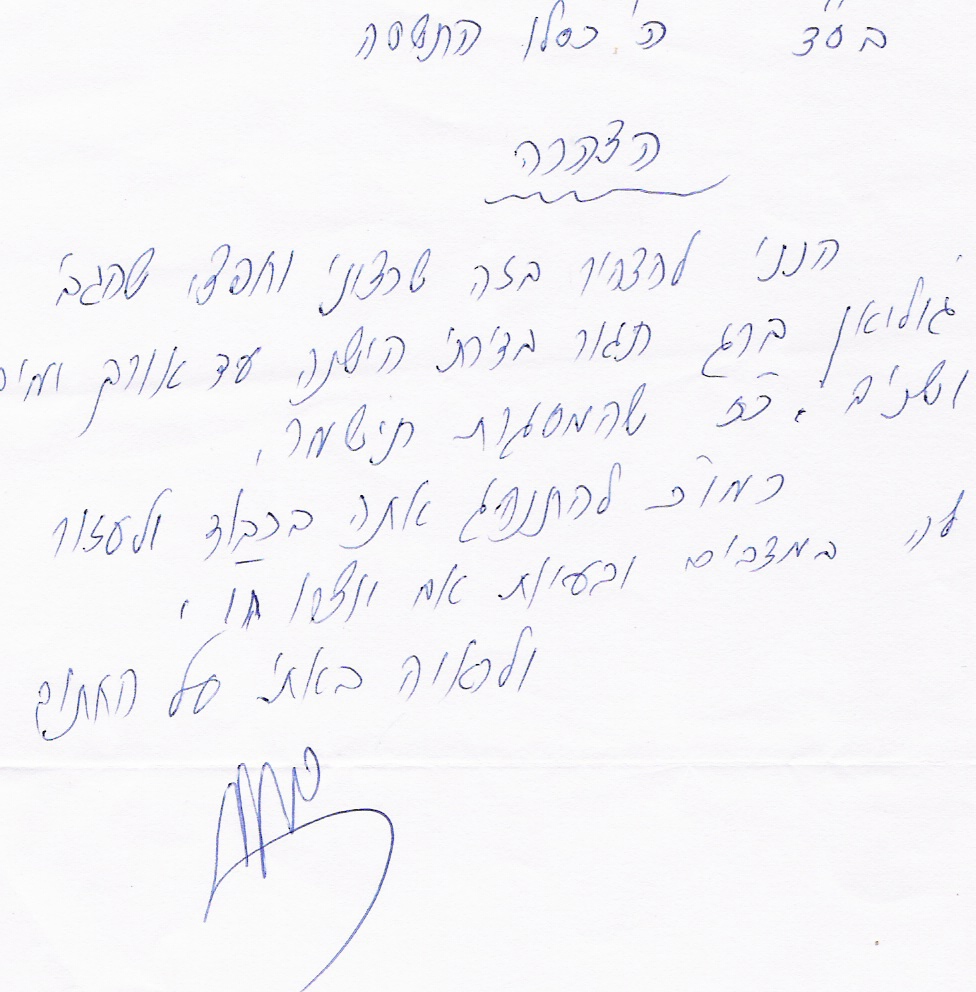 בסד ה' כסלו התשסה
הצהרה
הנני להצהיר בזה שרצוני וחפצי שהגב'
ג'וליאן ברג תגור בדירתי הישנה עד אורך ימים
ושנים. כ"ז שהמסגרת תישמר.
כמו"כ להתנהג אתה בכבוד ולעזור
לה במצרכים ובעיות אם יוצרו ח"ו
ולראיה באתי על החתום